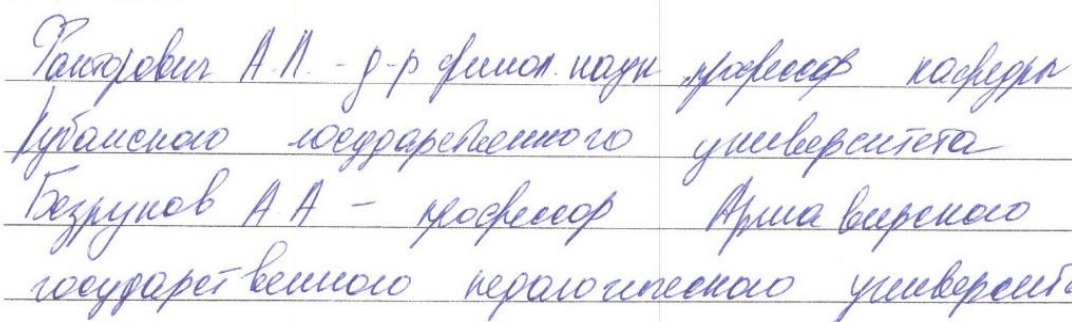 Факторович А.Л. - д-р филол. наук, профессор кафедры
Кубанского государственного университета
Безруков А.А - профессор Армавирского
государственного педагогического университе